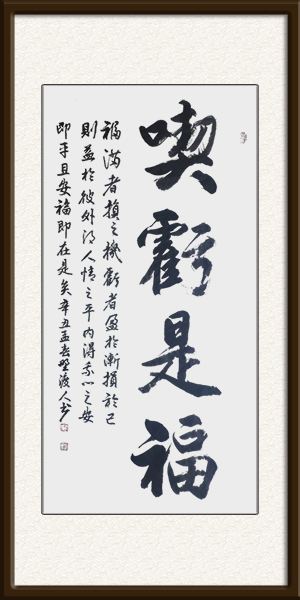 喫虧是福
福滿者損之機虧者盈於漸損於己
則益於彼外得人情之平內得我心之安
即平且安福即在是矣辛丑孟春野渡人书